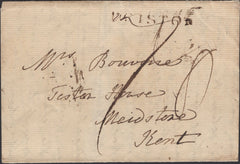 BRISTOL
Mrs Bouverie
Teston House
Meidstone
Kent